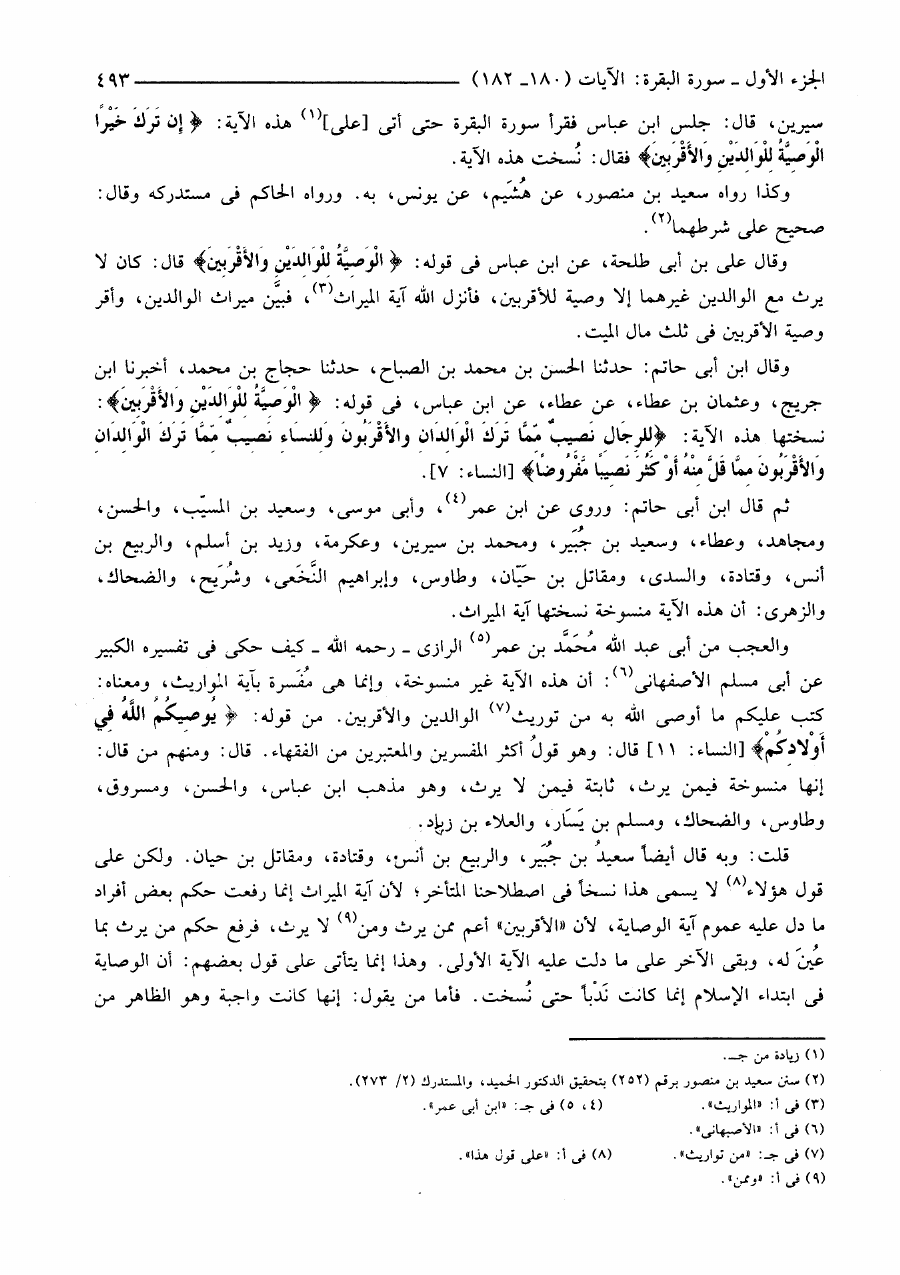 الجزء الأول ـ سورة البقرة: الآيات (١٨٠ـ ١٨٢) ٤٩٣
سيرين، قال: جلس ابن عباس فقرأ سورة البقرة حتى أتى [على](١) هذه الآية: ﴿ إِن تَرَكَ خَيْرًا
الْوَصِيَّةُ لِلْوَالِدَيْنِ وَالأَقْرَبِينَ﴾ فقال: نُسخت هذه الآية.
وكذا رواه سعيد بن منصور، عن هُشَيم، عن يونس، به. ورواه الحاكم فى مستدركه وقال:
صحيح على شرطهما(٢).
وقال على بن أبى طلحة، عن ابن عباس فى قوله: ﴿ الْوَصِيَّةُ لِلْوَالِدَيْنِ وَالأَقْرَبِينَ﴾ قال: كان لا
يرث مع الوالدين غيرهما إلا وصية للأقربين، فأنزل الله آية الميراث(٣)، فبيَّن ميراث الوالدين، وأقر
وصية الأقربين فى ثلث مال الميت.
وقال ابن أبى حاتم: حدثنا الحسن بن محمد بن الصباح، حدثنا حجاج بن محمد، أخبرنا ابن
جريج، وعثمان بن عطاء، عن عطاء، عن ابن عباس، فى قوله: ﴿ الْوَصِيَّةُ لِلْوَالِدَيْنِ وَالأَقْرَبِينَ﴾:
نسختها هذه الآية: ﴿لِلرِّجَالِ نَصِيبٌ مِّمَّا تَرَكَ الْوَالِدَانِ وَالأَقْرَبُونَ وَلِلنِّسَاءِ نَصِيبٌ مِّمَّا تَرَكَ الْوَالِدَانِ
وَالأَقْرَبُونَ مِمَّا قَلَّ مِنْهُ أَوْ كَثُرَ نَصِيبًا مَّفْرُوضًا﴾ [النساء: ٧].
ثم قال ابن أبى حاتم: وروى عن ابن عمر(٤)، وأبى موسى، وسعيد بن المسيّب، والحسن،
ومجاهد، وعطاء، وسعيد بن جُبَير، ومحمد بن سيرين، وعكرمة، وزيد بن أسلم، والربيع بن
أنس، وقتادة، والسدى، ومقاتل بن حَيّان، وطاوس، وإبراهيم النَّخَعى، وشُرَيح، والضحاك،
والزهرى: أن هذه الآية منسوخة نسختها آية الميراث.
والعجب من أبى عبد الله مُحَمَّد بن عمر(٥) الرازى ـ رحمه الله ـ كيف حكى فى تفسيره الكبير
عن أبى مسلم الأصفهانى(٦): أن هذه الآية غير منسوخة، وإنما هى مُفَسرة بآية المواريث، ومعناه:
كتب عليكم ما أوصى الله به من توريث(٧) الوالدين والأقربين. من قوله: ﴿ يُوصِيكُمُ اللَّهُ فِي
أَوْلادِكُمْ﴾ [النساء: ١١] قال: وهو قولُ أكثر المفسرين والمعتبرين من الفقهاء. قال: ومنهم من قال:
إنها منسوخة فيمن يرث، ثابتة فيمن لا يرث، وهو مذهب ابن عباس، والحسن، ومسروق،
وطاوس، والضحاك، ومسلم بن يَسَار، والعلاء بن زياد.
قلت: وبه قال أيضاً سعيدُ بن جُبَير، والربيع بن أنس، وقتادة، ومقاتل بن حيان. ولكن على
قول هؤلاء(٨) لا يسمى هذا نسخاً فى اصطلاحنا المتأخر؛ لأن آية الميراث إنما رفعت حكم بعض أفراد
ما دل عليه عموم آية الوصاية، لأن «الأقربين» أعم ممن يرث ومن(٩) لا يرث، فرفع حكم من يرث بما
عُينَ له، وبقى الآخر على ما دلت عليه الآية الأولى. وهذا إنما يتأتى على قول بعضهم: أن الوصاية
فى ابتداء الإسلام إنما كانت نَدْباً حتى نُسخت. فأما من يقول: إنها كانت واجبة وهو الظاهر من
(١) زيادة من جـ.
(٢) سنن سعيد بن منصور برقم (٢٥٢) بتحقيق الدكتور الحميد، والمستدرك (٢/ ٢٧٣).
(٣) فى أ: «المواريث». (٤، ٥) فى جـ: «ابن أبى عمر».
(٦) فى أ: «الأصبهانى».
(٧) فى جـ: «من تواريث». (٨) فى أ: «على قول هذا».
(٩) فى أ: «وممن».